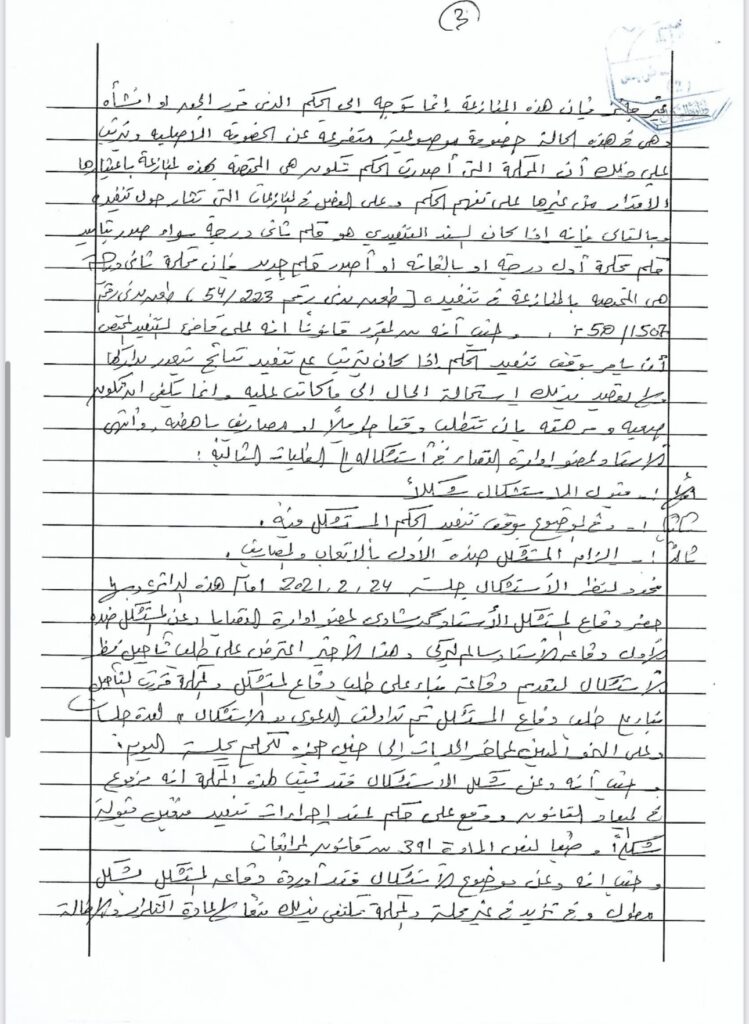 3
غير جائز فإن هذه المنازعة إنما توجه الى الحكم الذى قرر الحق او انشأه
وهي في هذه الحالة خصومة موضوعية متفرعة عن الخصومة الاصلية وترتب
على ذلك أن المحكمة التى أصدرت الحكم تكون هى المختصة بهذه المنازعة باعتبارها
الاقدار من غيرها على تفهم الحكم وعلى الفصل في المنازعات التى تثار حول تنفيذه
وبالتالى فإنه اذا كان السند التنفيذي هو حكم ثانى درجة سواء صدر بتأييد
حكم محكمة أول درجة او بالغائه او أصدر حكم جديد فإن محكمة ثانى درجة
هى المختصة بالمنازعة فى تنفيذه [ طعن مدنى رقم 54/223 ) طعن مدنى رقم
1507/58 . وحيث أنه من المقرر قانونًا انه على قاضى التنفيذ المختص
أن يامر بوقف تنفيذ الحكم اذا كان يترتب على تنفيذه نتائج يتعذر تداركها
ولا يقصد بذلك استحالة الحال الى ما كانت عليه وانما يكفى ان تكون
صعبة و مرهقة بان تتطلب وقتا طويلاً او مصاريف باهظة. وأنتهى
الاستاذ عضو ادارة القضايا فى استشكاله الى الطلبات التالية :
أولا :- قبول الاستشكال شكلاً
ثانيًا :- وفى الموضوع بوقف تنفيذ الحكم المستشكل فيه .
ثالثًا :- الزام المستشكل ضده الأول بالاتعاب والمصاريف .
حدد لنظر الأستشكال جلسة 24 . 2 . 2021 امام هذه الدائرة وبها
حضر دفاع المستشكل الأستاذ محمد شادى عضو ادارة القضايا وعن المستشكل ضده
الأول دفاعه الأستاذ سالم التركى وهذا الأخير اعترض على طلب تأجيل نظر
الأستشكال لتقديم دفاعه بناء على طلب دفاع المستشكل والمحكمة قررت التأجيل
بناء على طلب دفاع المستشكل ثم تداولت الدعوى " الاستشكال " لعدة جلسات
وعلى النحو المبين بمحاضر الجلسات إلى حين حجزه للحكم بجلسة اليوم .
وحيث أنه وعن شكل الاستشكال فقد ثبت لهذه المحكمة انه مرفوع
فى الميعاد القانونى ووقع على حكم لمنع إجراءات تنفيذه فتعين قبوله
شكلاً وطبقا لنص المادة 391 من قانون المرافعات
وحيث انه وعن موضوع الأستشكال فقد أورده دفاع المستشكل بشكل
مطول وفى تزيد فى غير محله والمحكمة تكتفى بذلك منعا لإعادة التكرار والإطالة